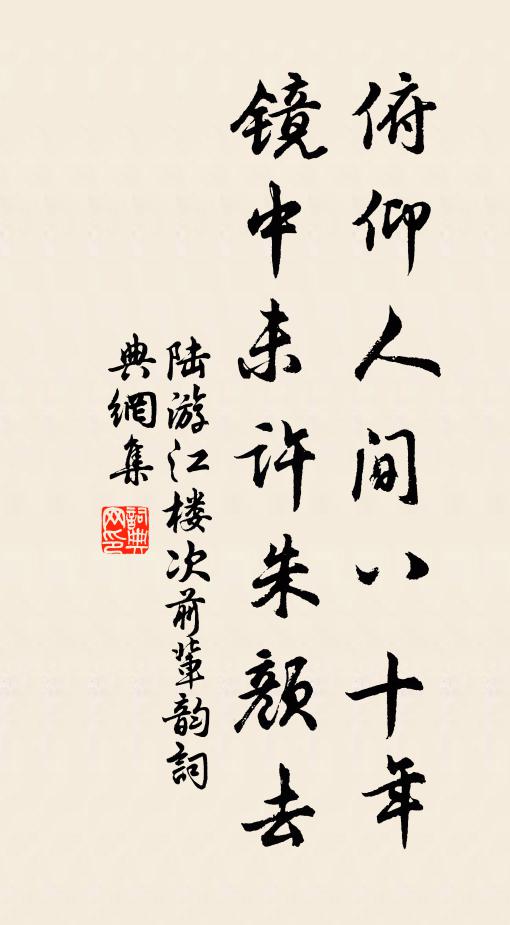 俯仰人间八十年
镜中未许朱颜去
陆游江楼次前輩韵詞
典網集
詞典网印